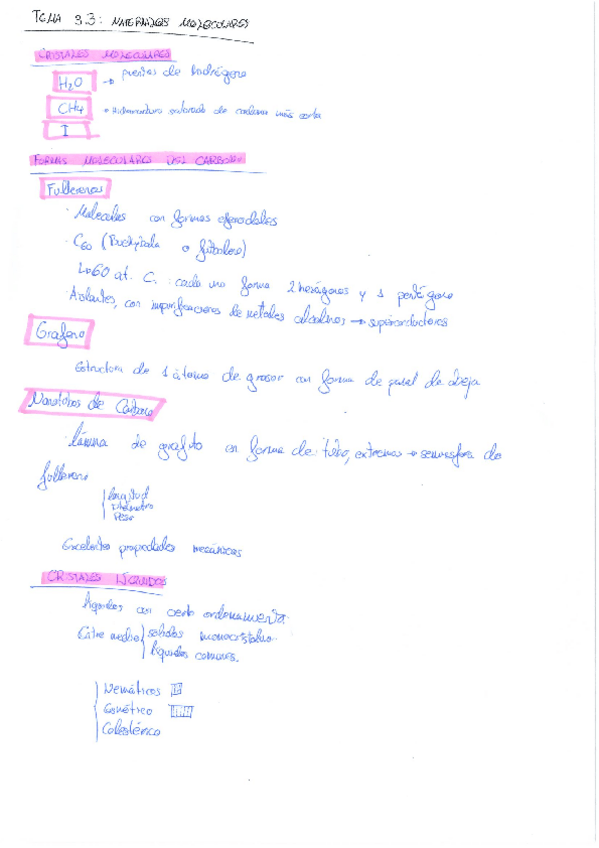 TEMA 3.3: MATERIALES MOLECULARES
CRISTALES MOLECULARES
H₂O → puentes de hidrógeno
CH4 → Hidrocarburo saturado de cadena más corta
I
FORMAS MOLECULARES DEL CARBONO
Fullerenos
· Moléculas con formas esferoidales
· C60 (Buckybala o futboleno)
↳ 60 at. C. : cada uno forma 2 hexágonos y 1 pentágono
· Aislantes, con impurificaciones de metales alcalinos → superconductores
Grafeno
Estructura de 1 átomo de grosor con forma de panal de abeja
Nanotubos de Carbono
· lámina de grafito en forma de tubo, extremos → semiesfera de
fullereno
longitud
Diámetro
Peso
Excelentes propiedades mecánicas
CRISTALES LÍQUIDOS
líquidos con cierto ordenamiento.
Entre medio sólidos monocristalino.
líquidos comunes.
Nemáticos
Esmético
Colestérico